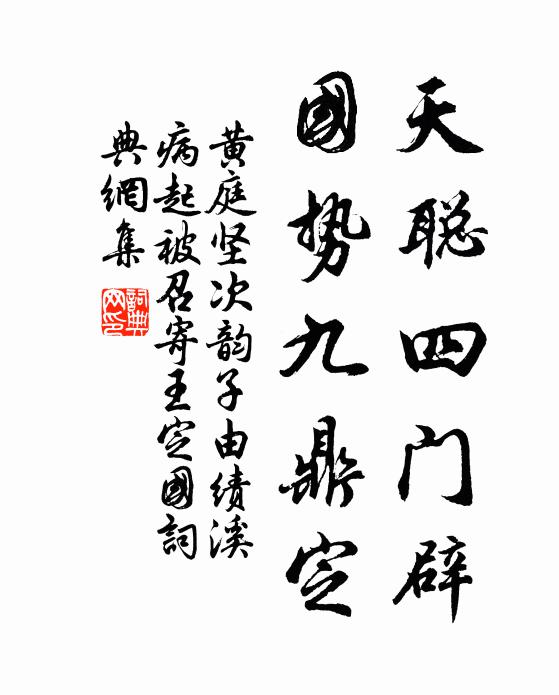 天聪四门辟
國势九鼎定
黄庭坚次韵子由绩溪
病起被召寄王定國詞
典網集
詞典
网印